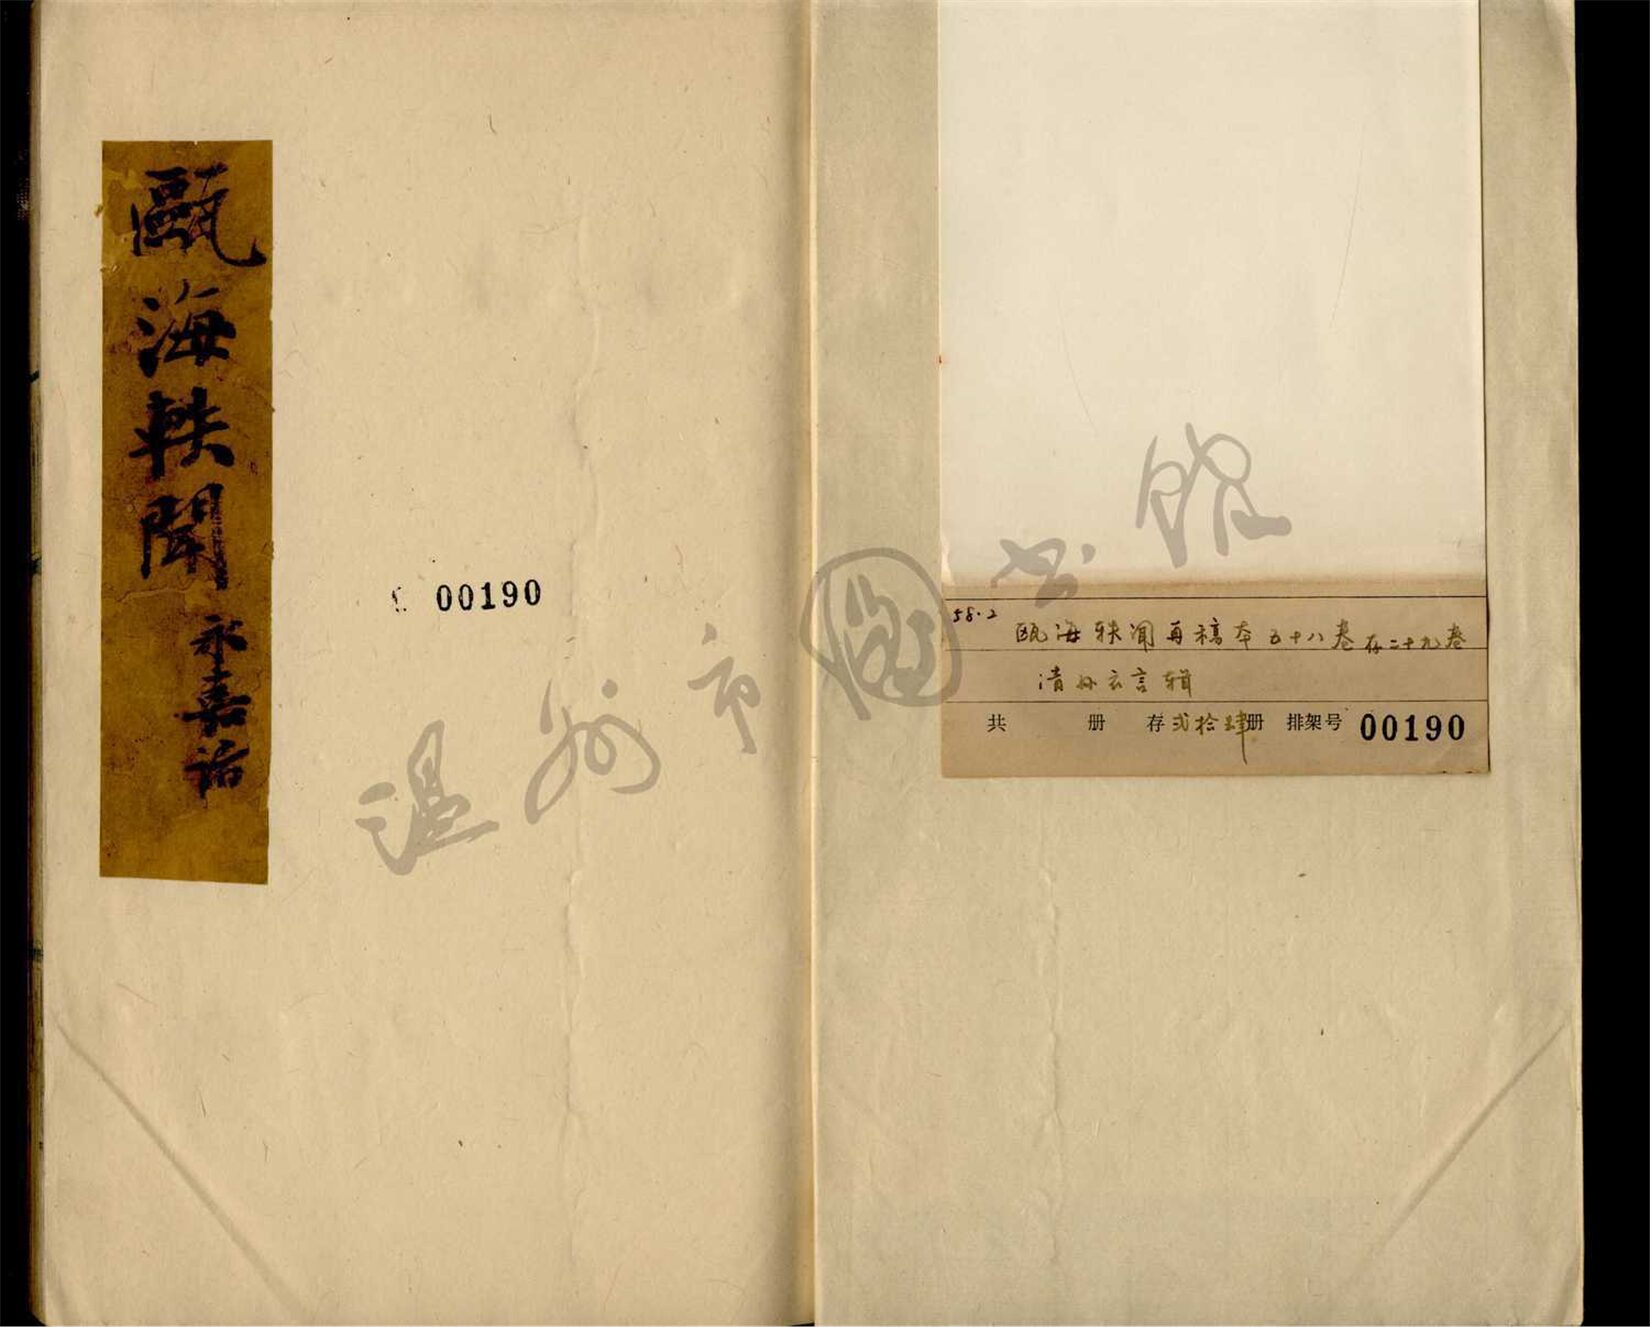 甌海軼聞
永嘉詁
00190
58.2
瓯海轶闻再稿本五十八卷存二十九卷
清孙衣言辑
共 册 存弍拾肆册 排架号 00190
温州市圖书馆